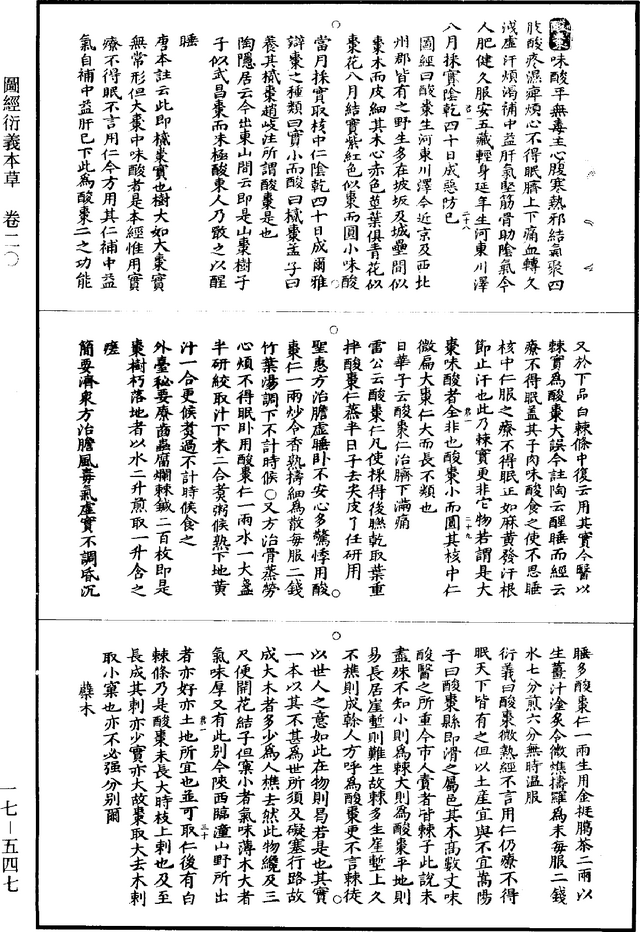 圖經衍義本草 卷二〇
一七—五四七
酸棗味酸平無毒主心腹寒熱邪結氣聚四
肢酸疼濕痺煩心不得眠臍上下痛血轉久
洩虛汗煩渴補中益肝氣堅筋骨助陰氣令
人肥健久服安五藏輕身延年生河東川澤
八月採實陰乾四十日成惡防已
圖經曰酸棗生河東川澤今近京及西北
州郡皆有之野生多在坡坂及城壘間似
棗木而皮細其木心赤色莖葉俱青花似
棗花八月結實紫紅色似棗而圓小味酸
當月採實取核中仁陰乾四十日成爾雅
辯棗之種類曰實小而酸曰樲棗孟子曰
養其樲棗趙岐注所謂酸棗是也
陶隱居云今出東山間云即是山棗樹子
子似武昌棗而味極酸東人乃噉之以醒
睡
唐本註云此即樲棗實也樹大如大棗實
無常形但大棗中味酸者是本經惟用實
療不得眠不言用仁今方用其仁補中益
氣自補中益肝已下此為酸棗二之功能
又於下品白棘條中復云用其實今醫以
棘實為酸棗大誤今註陶云醒睡而經云
療不得眠蓋其子肉味酸食之使不思睡
核中仁服之療不得眠正如麻黃發汗根
節止汗也此乃棘實更非它物若謂是大
棗味酸者全非也酸棗小而圓其核中仁
微扁大棗仁大而長不類也
日華子云酸棗仁治臍下滿痛
雷公云酸棗仁凡使採得後曬乾取葉重
拌酸棗仁蒸半日子去尖皮了任研用
聖惠方治膽虛睡卧不安心多驚悸用酸
棗仁一兩炒令香熟擣細為散每服二錢
竹葉湯調下不計時候○又方治骨蒸勞
心煩不得眠卧用酸棗仁一兩水一大盞
半研絞取汁下米二合煮粥候熟下地黃
汁一合更候煮過不計時候食之
外臺秘要療齒蟲腐爛棘鍼二百枚即是
棗樹朽落地者以水二升煎取一升含之
瘥
簡要濟眾方治膽風毒氣虛實不調昏沉
睡多酸棗仁一兩生用金挺臘茶二兩以
生薑汁塗炙令微燋擣羅為末每服二錢
水七分煎六分無時溫服
衍義曰酸棗微熱經不言用仁仍療不得
眠天下皆有之但以土産宜與不宜嵩陽
子曰酸棗縣即滑之屬邑其木高數丈味
酸醫之所重今市人賣者皆棘子此說未
盡殊不知小則為棘大則為酸棗平地則
易長居崖塹則難生故棘多生崖塹上久
不樵則成幹人方呼為酸棗更不言棘徒
以世人之意如此在物則曷若是也其實
一本以其不甚為世所須及礙塞行路故
成大木者多少為人樵去然此物纔及三
尺便開花結子但窠小者氣味薄木大者
氣味厚又有此別今陝西臨潼山野所出
者亦好亦土地所宜也並可取仁後有白
棘條乃是酸棗未長大時枝上刺也及至
長成其刺亦少實亦大故棗取大木刺
取小窠也亦不必强分別爾
蘗木